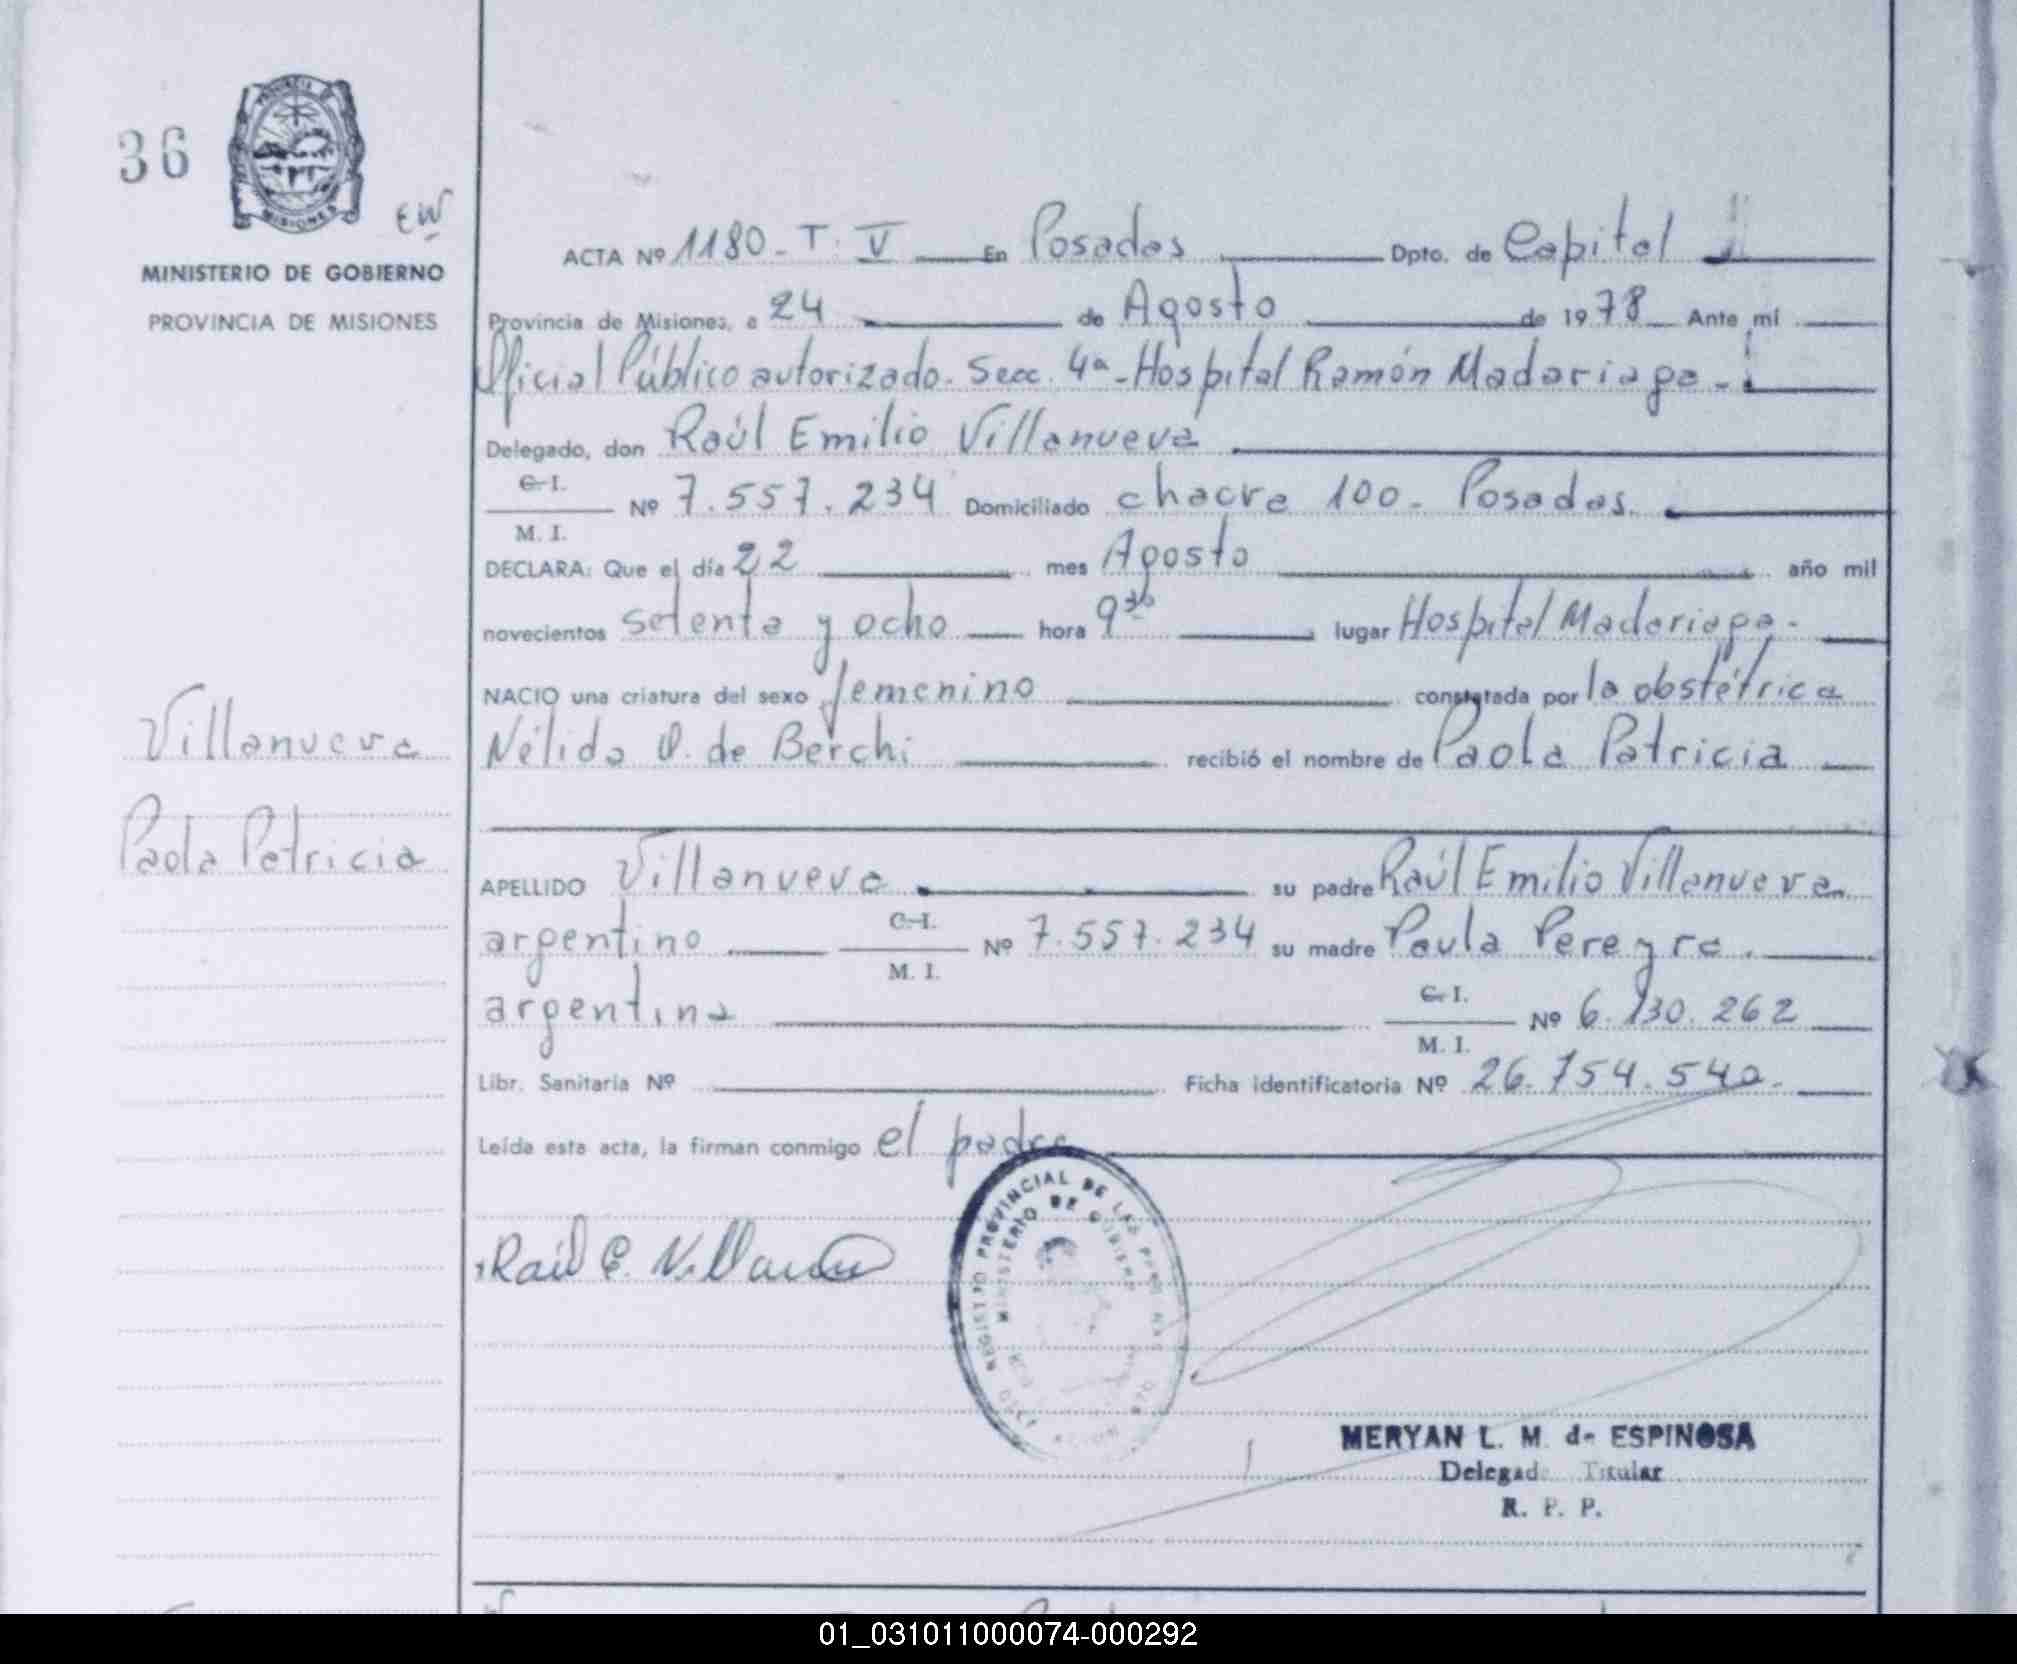 36
PROVINCIA DE
MISIONES
EW
MINISTERIO DE GOBIERNO
PROVINCIA DE MISIONES
ACTA Nº 1180 - T. V En Posadas Dpto. de Capital
Provincia de Misiones, a 24 de Agosto de 1978 Ante mí
Oficial Público autorizado. Secc. 4ª - Hospital Ramón Madariaga -
Delegado, don Raúl Emilio Villanueva
C. I.
Nº 7.557.234 Domiciliado chacra 100 - Posadas.
M. I.
DECLARA: Que el día 22 mes Agosto año mil
novecientos setenta y ocho hora 9 30 lugar Hospital Madariaga -
NACIO una criatura del sexo femenino constatada por la obstétrica
Nélida O. de Berchi recibió el nombre de Paola Patricia
Villanueva
Paola Patricia
APELLIDO Villanueva su padre Raúl Emilio Villanueva
argentino C. I. Nº 7.557.234 su madre Paula Pereyra.
M. I.
argentina C. I. Nº 6.130.262
M. I.
Libr. Sanitaria Nº Ficha identificatoria Nº 26.754.540.
Leída esta acta, la firman conmigo el padre
Raúl E. Villanueva
REGISTRO PROVINCIAL DE LAS
MINISTERIO DE GOBIERNO
MERYAN L. M. de ESPINOSA
Delegada Titular
R. P. P.
01_031011000074-000292